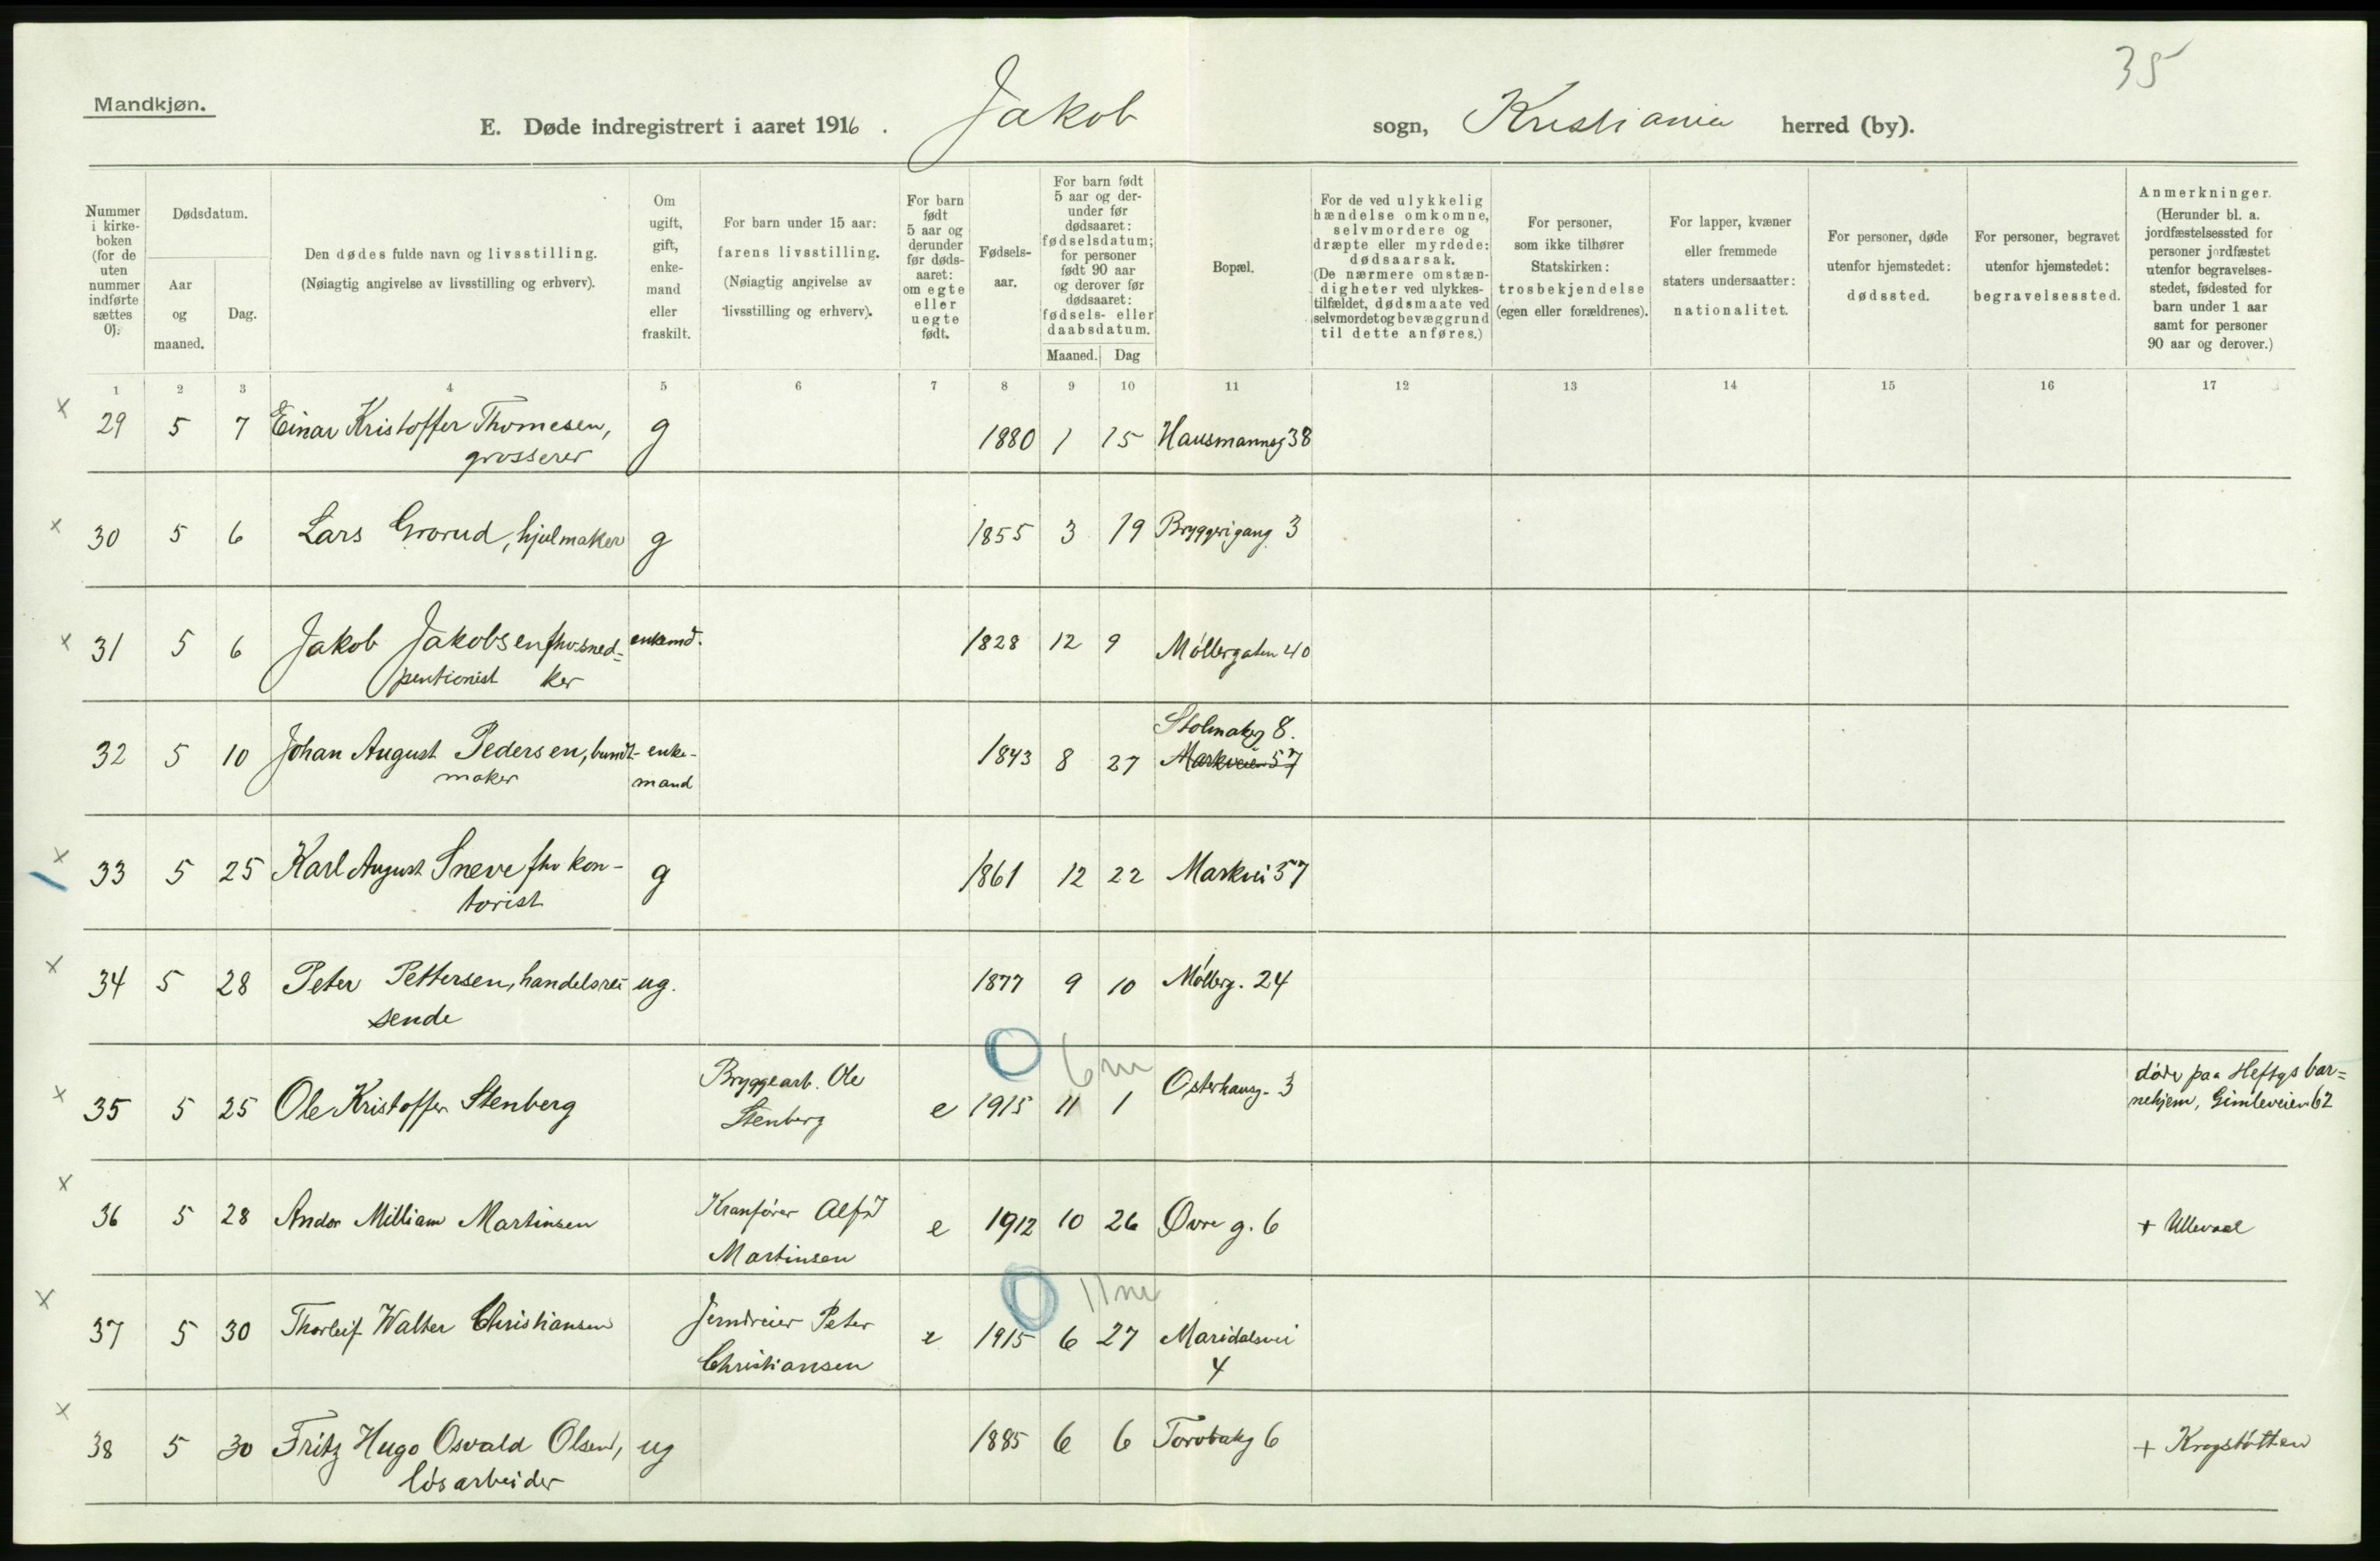 35
Mandkjøn.
E. Døde indregistrert i aaret 1916. Jakob sogn, Kristiania herred (by).
Nummer i kirke-boken (for de uten nummer indførte sættes 0).
Dødsdatum.
Aar og maaned.
Dag.
Den dødes fulde navn og livsstilling.
(Nøiagtig angivelse av livsstilling og erhverv).
Om ugift, gift, enke-mand eller fraskilt.
For barn under 15 aar: farens livsstilling.
(Nøiagtig angivelse av livsstilling og erhverv).
For barn født 5 aar og derunder før døds-aaret: om egte eller uegte født.
Fødsels-aar.
For barn født 5 aar og der-under før dødsaaret: fødselsdatum; for personer født 90 aar og derover før dødsaaret: fødsels- eller daabsdatum.
Maaned. Dag
Bopæl.
For de ved ulykkelig hændelse omkomne, selvmordere og dræpte eller myrdede: dødsaarsak.
(De nærmere omstæn-digheter ved ulykkes-tilfældet, dødsmaate ved selvmordet og bevæggrund til dette anføres.)
For personer, som ikke tilhører Statskirken: trosbekjendelse (egen eller forældrenes).
For lapper, kvæner eller fremmede staters undersaatter: nationalitet.
For personer, døde utenfor hjemstedet: dødssted.
For personer, begravet utenfor hjemstedet: begravelsessted.
Anmerkninger.
(Herunder bl. a. jordfæstelsessted for personer jordfæstet utenfor begravelses-stedet, fødested for barn under 1 aar samt for personer 90 aar og derover.)
1 2 3 4 5 6 7 8 9 10 11 12 13 14 15 16 17
x 29 5 7 Einar Kristoffer Thomesen, g 1880 1 15 Hausmannsg 38
grosserer
x 30 5 6 Lars Grorud, hjulmaker g 1855 3 19 Bryggerigang 3
x 31 5 6 Jakob Jakobsen fhv sned= enkemd. 1828 12 9 Møllergaten 40
pentionist ker
Stolmakerg 8.
32 5 10 Johan August Pedersen, bundt- enke- 1843 8 27 Markveien 57
maker mand
x 33 5 25 Karl August Sneve fhv kon- g 1861 12 22 Markvei 57
torist
x 34 5 28 Peter Pettersen, handelsrei- ug. 1877 9 10 Møllerg. 24
sende
0 6 m
x 35 5 25 Ole Kristoffer Stenberg Bryggearb. Ole e 1915 11 1 Osterhausg. 3 døde paa Heftys bar=
Stenberg nehjem, Gimleveien 62
x 36 5 28 Andor Milliam Martinsen Kranfører Alfr e 1912 10 26 Øvre g. 6 + Ullevaal
Martinsen
0 11 m
x 37 5 30 Thorleif Walter Christiansen Jerndreier Peter e 1915 6 27 Maridalsvei
Christiansen 4
x 38 5 30 Fritz Hugo Osvald Olsen, ug 1885 6 6 Torvbakg 6 + Krogstøtten
løsarbeider